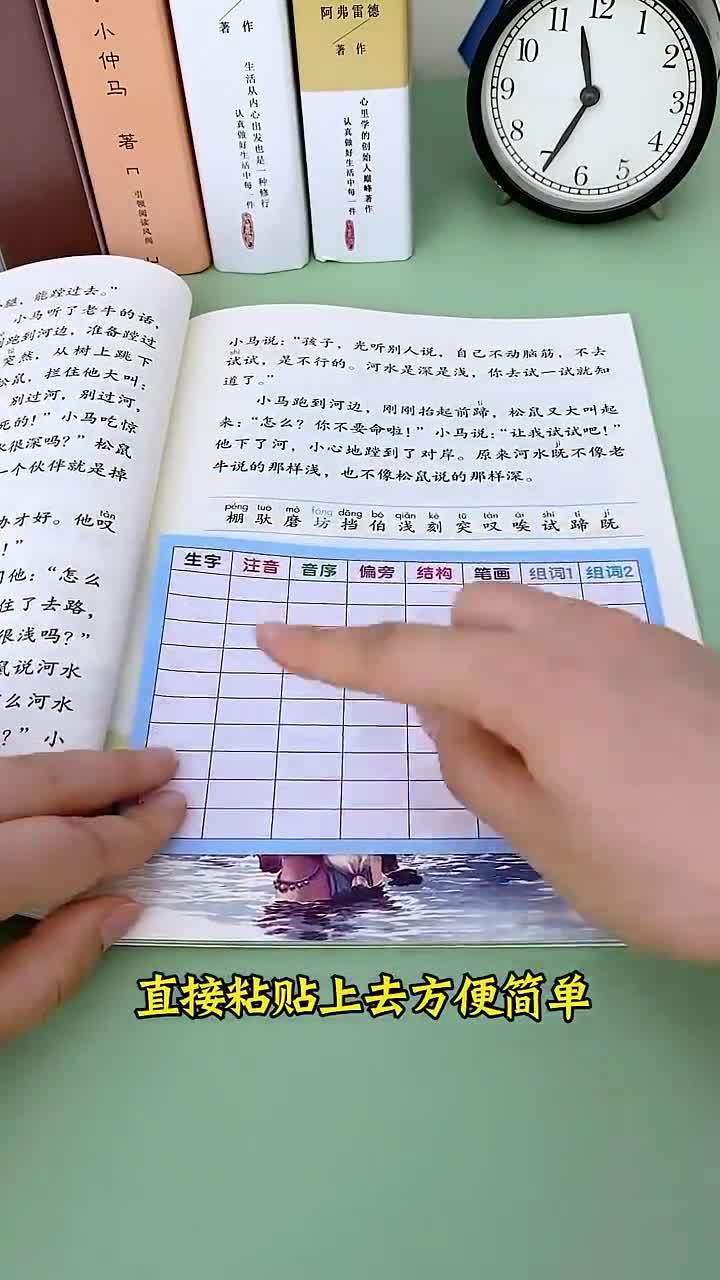 小仲马 著
引领阅读风尚
著 作
生活从内心出发也是一种修行
认真做好生活中每一件
阿弗雷德
著 作
心里学的创始人巅峰著作
认真做好生活中每一件
12
11
1
2
3
4
5
6
7
8
9
10
腿，能蹚过去。”
小马听了老牛的话，
跑到河边，准备蹚过
突然，从树上跳下
松鼠，拦住他大叫：
别过河，别过河，
死的！”小马吃惊
水很深吗？”松鼠
一个伙伴就是掉
办才好。他叹
tàn
！”
们他：“怎么
住了去路，
很浅吗？”
鼠说河水
么河水
？”小
小马说：“孩子，光听别人说，自己不动脑筋，不去
shì
试试，是不行的。河水是深是浅，你去试一试就知
道了。”
tí
小马跑到河边，刚刚抬起前蹄，松鼠又大叫起
来：“怎么？你不要命啦！”小马说：“让我试试吧！”
jì
他下了河，小心地蹚到了对岸。原来河水既不像老
牛说的那样浅，也不像松鼠说的那样深。
péng tuó mò fáng dǎng bó qiǎn kè tū tàn ài shì tí jì
棚 驮 磨 坊 挡 伯 浅 刻 突 叹 唉 试 蹄 既
生字 注音 音序 偏旁 结构 笔画 组词1 组词2
直接粘贴上去方便简单